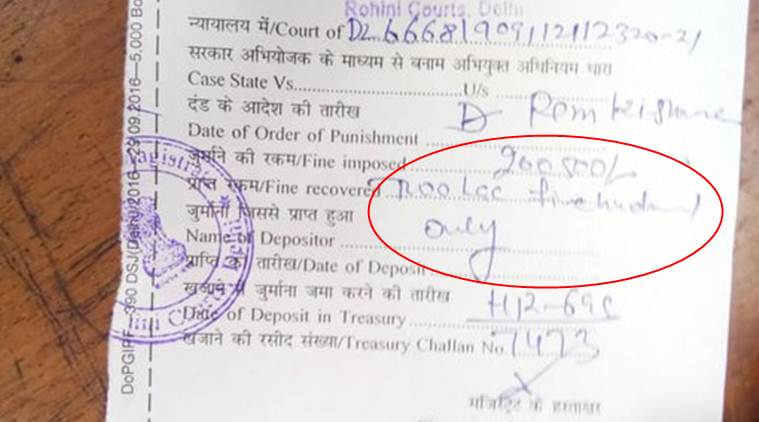 Rohini Courts, Delhi
न्यायालय में/Court of DL 666819091121123 20-21
सरकार अभियोजक के माध्यम से बनाम अभियुक्त अधिनियम धारा
Case State Vs. U/s
दंड के आदेश की तारीख D Ram Kishane
Date of Order of Punishment
जुर्माने की रकम/Fine imposed 200500/-
प्राप्त रकम/Fine recovered Two Lac five hundred
जुर्माना जिससे प्राप्त हुआ only
Name of Depositor
प्राप्ति की तारीख/Date of Deposit
खजाने में जुर्माना जमा करने की तारीख
Date of Deposit in Treasury
खजाने की रसीद संख्या/Treasury Challan No. 7473
मजिस्ट्रेट के हस्ताक्षर
DoPGIPF—390 DSJ(Delhi)/2016—29.09.2016—5,000 Bo